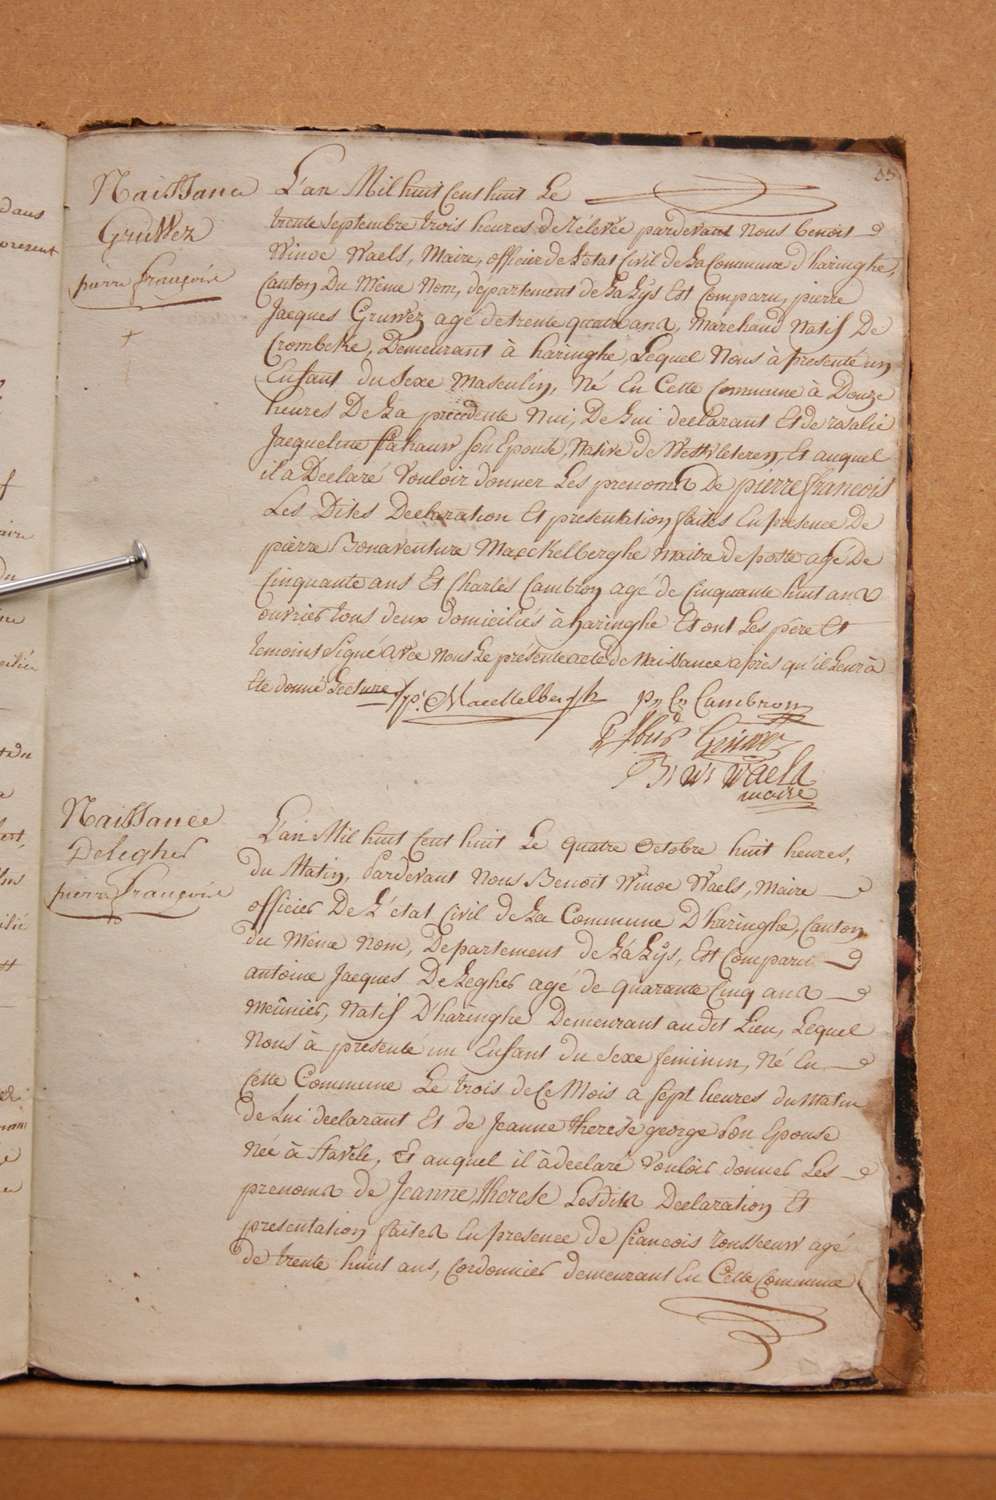 33
Naissance
Gruwez
pierre françois
L'an Mil huit Cent huit Le
trente Septembre trois heures de Rélévée pardevant Nous benoit
Winoc Waels, Maire, officier de L'etat Civil de La Commune d'haringhe,
Canton Du Même Nom, departement de La Lÿs Est Comparu, pierre
Jacques Gruwez agé de trente quatre ans, Marchand Natif De
Crombeke, Demeurant à haringhe, Lequel Nous à présenté un
Enfant du Sexe Masculin, Né En Cette Commune à Douze
heures De La précédente Nui, De Lui declarant Et de
Jacqueline son Epouse, Native de Westvleteren, Et auquel
il à Declaré Vouloir donner Les prenoms De pierre francois
Les Dites Declaration Et présentation faites En présence De
pierre Bonaventure Maeckelberghe Maitre de poste agé De
Cinquante ans Et Charles Cambron agé de Cinquante huit ans
ouvrier tous deux domiciliés à haringhe Et ont Les père Et
temoins Signé avec nous Le présente acte de Naissance après qu'il Leur à
Eté donné Lecture
p. Maeckelbergh
Cambron
Gruwez
B: W: Waels
maire
Naissance
Delegher
pierre françois
L'an Mil huit Cent huit Le quatre Octobre huit heures,
du Matin, Pardevant Nous Benoit Winoc Waels, Maire
officier De L'etat Civil de La Commune D'haringhe, Canton
du Même Nom, Departement de La Lÿs, Est Comparu
antoine Jacques De Legher agé de quarante Cinq ans
Meûnier, Natif D'haringhe Demeurant audit Lieu, Lequel
Nous à présenté un Enfant du Sexe feminin, Né En
Cette Commune Le trois de Ce Mois à Sept heures du Matin
de Lui declarant Et de Jeanne therese george son Epouse
Née à Stavele, Et auquel il à declaré vouloir donner Les
prenoms de Jeanne therese Lesdits Declaration Et
présentation faites En présence de francois rousseeuw agé
de trente huit ans, Cordonnier demeurant En Cette Commune